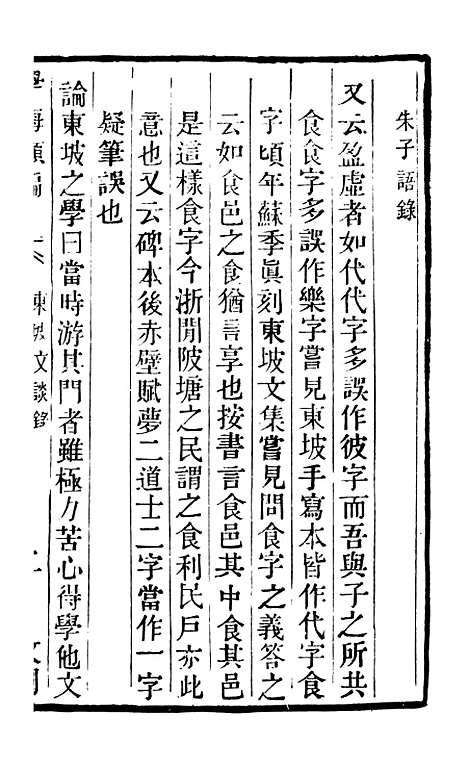 朱子語錄
又云盈虛者如代代字多誤作彼字而吾與子之所共
食食字多誤作樂字嘗見東坡手寫本皆作代字食
字頃年蘇季眞刻東坡文集嘗見問食字之義答之
云如食邑之食猶言享也按書言食邑其中食其邑
是這樣食字今浙閒陂塘之民謂之食利民戶亦此
意也又云碑本後赤壁賦夢二道士二字當作一字
疑筆誤也
論東坡之學曰當時游其門者雖極力苦心得學他文